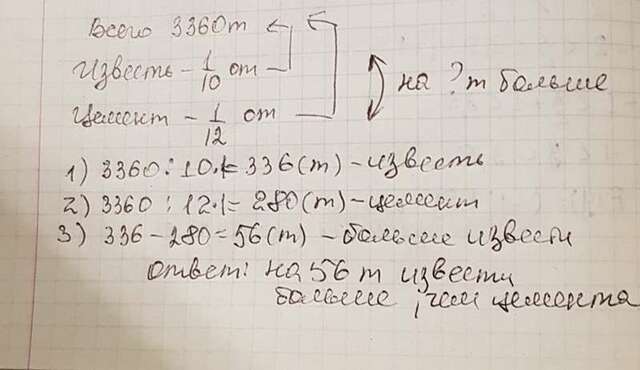 Всего 3360 т
Известь - 1/10 от
Цемент - 1/12 от
на ? т больше
1) 3360 : 10 · 1 = 336 (т) - известь
2) 3360 : 12 · 1 = 280 (т) - цемент
3) 336 - 280 = 56 (т) - больше извести
ответ: на 56 т извести
больше, чем цемента